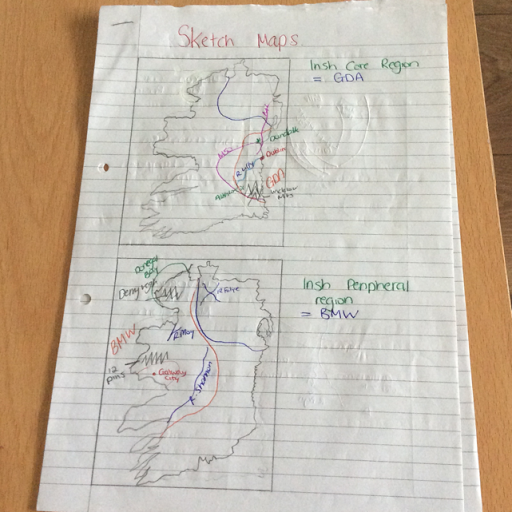 Sketch Maps
Irish Core Region
= GDA
Dundalk
Dublin
GDA
Wicklow
Mts
Irish Peripheral
region
= BMW
Donegal
Bay
Derryveagh
BMW
R. Moy
12
Pins
Galway
City
R. Shannon